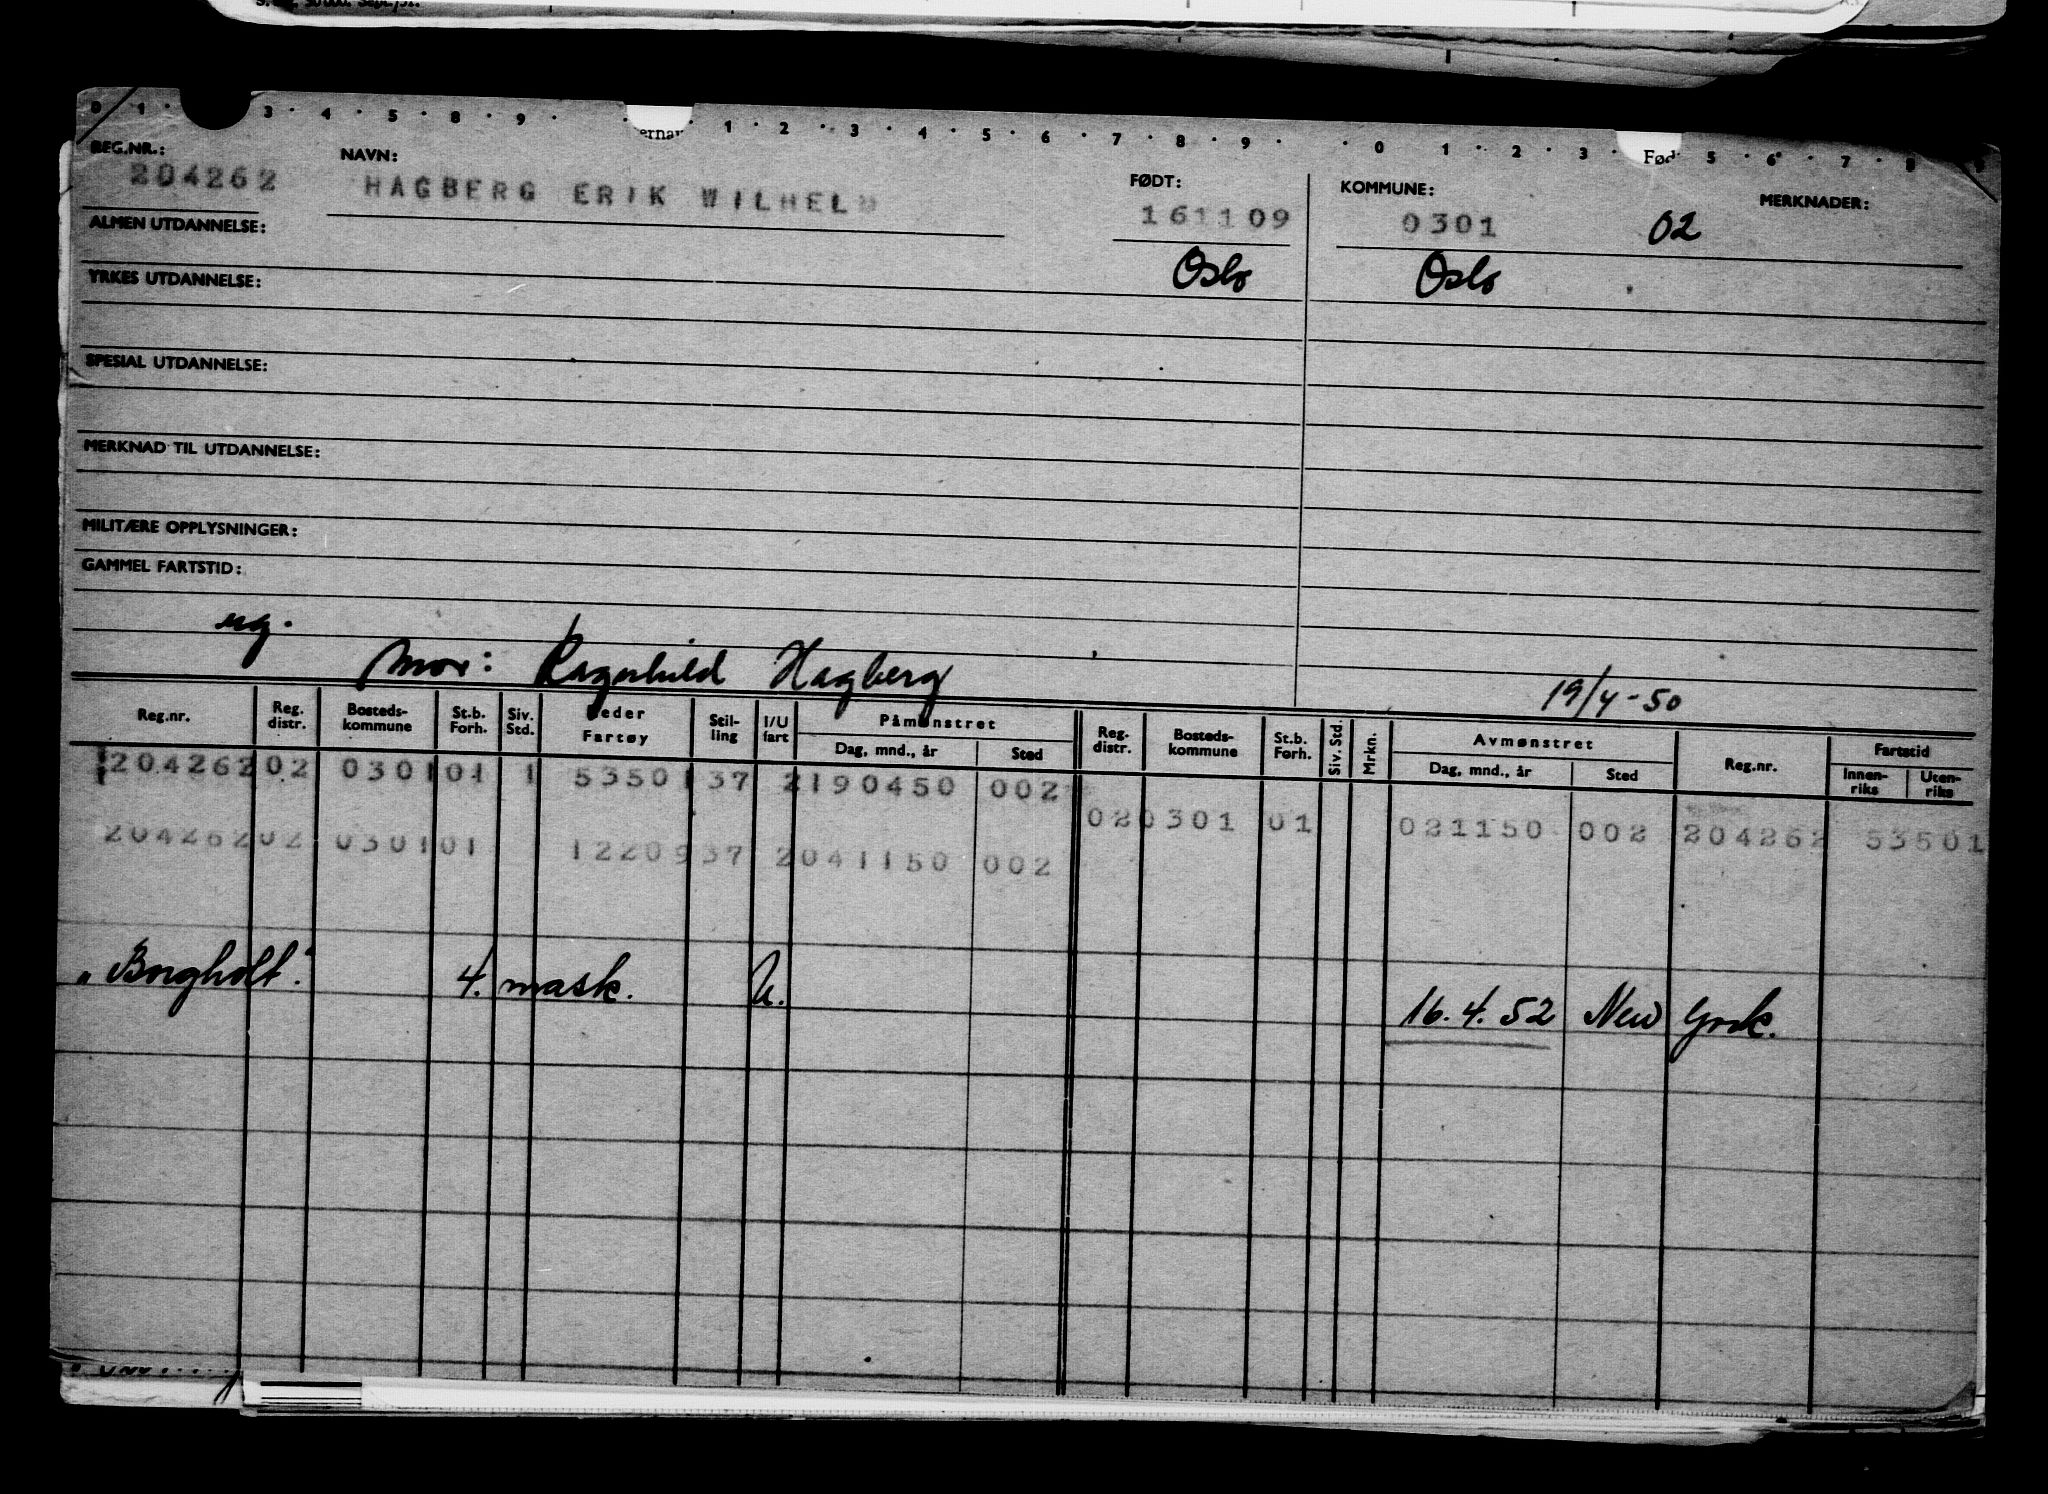 0 1 · 3 · 4 · 5 · 8 · 9 · · 1 · 2 · 3 · 4 · 5 · 6 · 7 · 8 · 9 · · 0 1 · 2 · 3 · 5 · 6 · 7 · 8 9
REG.NR.: NAVN: FØDT: KOMMUNE: MERKNADER:
204262 HAGBERG ERIK WILHELM 161109 0301 02
ALMEN UTDANNELSE: Oslo Oslo
YRKES UTDANNELSE:
SPESIAL UTDANNELSE:
MERKNAD TIL UTDANNELSE:
MILITÆRE OPPLYSNINGER:
GAMMEL FARTSTID:
ug.
Mor: Ragnhild Hagberg 19/4-50
Reg.nr. Reg. distr. Bosteds-kommune St.b. Forh. Siv. Std. Reder Fartøy Stil-ling I/U fart Påmønstret Dag, mnd., år Sted Reg. distr. Bosteds-kommune St.b. Forh. Siv. Std. Mrkn. Avmønstret Dag, mnd., år Sted Reg.nr. Fartstid Innen-riks Uten-riks
204262 02 0301 01 1 53501 37 2 190450 002
02 0301 01 021150 002 204262 53501
204262 02 0301 01 12209 37 2 041150 002
"Borgholt". 4. mask. U. 16.4.52 New York.